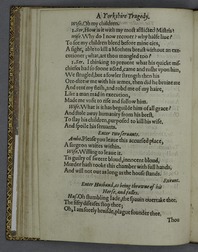 A Yorkshire Tragedy.
Wife. Oh my children.
2. Ser. How is it with my most afflicted Mistris?
Wife. Why do I now recover? why halfe live?
To see my children bleed before mine eies,
A sight, able to kill a Mothers breast without an ex-
ecutioner, what, art thou mangled too?
2. Ser. I thinking to prevent what his quicke mis-
chiefes had so soone acted, came and rusht upon him,
We strugled, but a fowler strength then his
Ore threw me with his armes, then did he bruise me
And rent my flesh, and robd me of my haire,
Like a man mad in execution,
Made me unfit to rise and follow him.
Wife. What is it has beguild him of all grace?
And stole away humanity from his brest,
To slay his children, purposed to kill his wife,
And spoile his servants.
Enter two servants.
Ambo. Please you leave this accursed place,
A surgeon waites within.
Wife. Willing to leave it.
Tis guilty of sweete bloud, innocent bloud,
Murder hath tooke this chamber with full hands,
And will not out as long as the house stands.
Exeunt.
Enter Husband, as being throwne off his
Horse, and falles.
Hus. Oh stumbling Jade, the spavin overtake thee,
The fifty diseases stop thee;
Oh, I am sorely bruisde, plague founder thee,
Thou